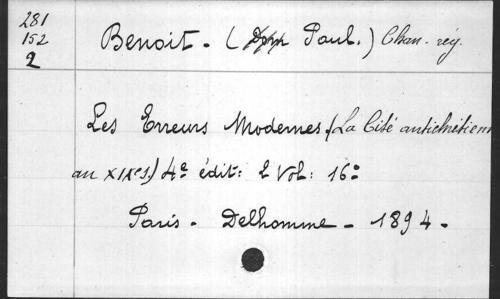 281
152
2
Benoit - ( Dom Paul. ) Chan. rég.
Les Erreurs Modernes. (La Cité antichrétienne
au XIXe s.) 4e édit: 2 Vol: 16º
Paris - Delhomme - 1894 -